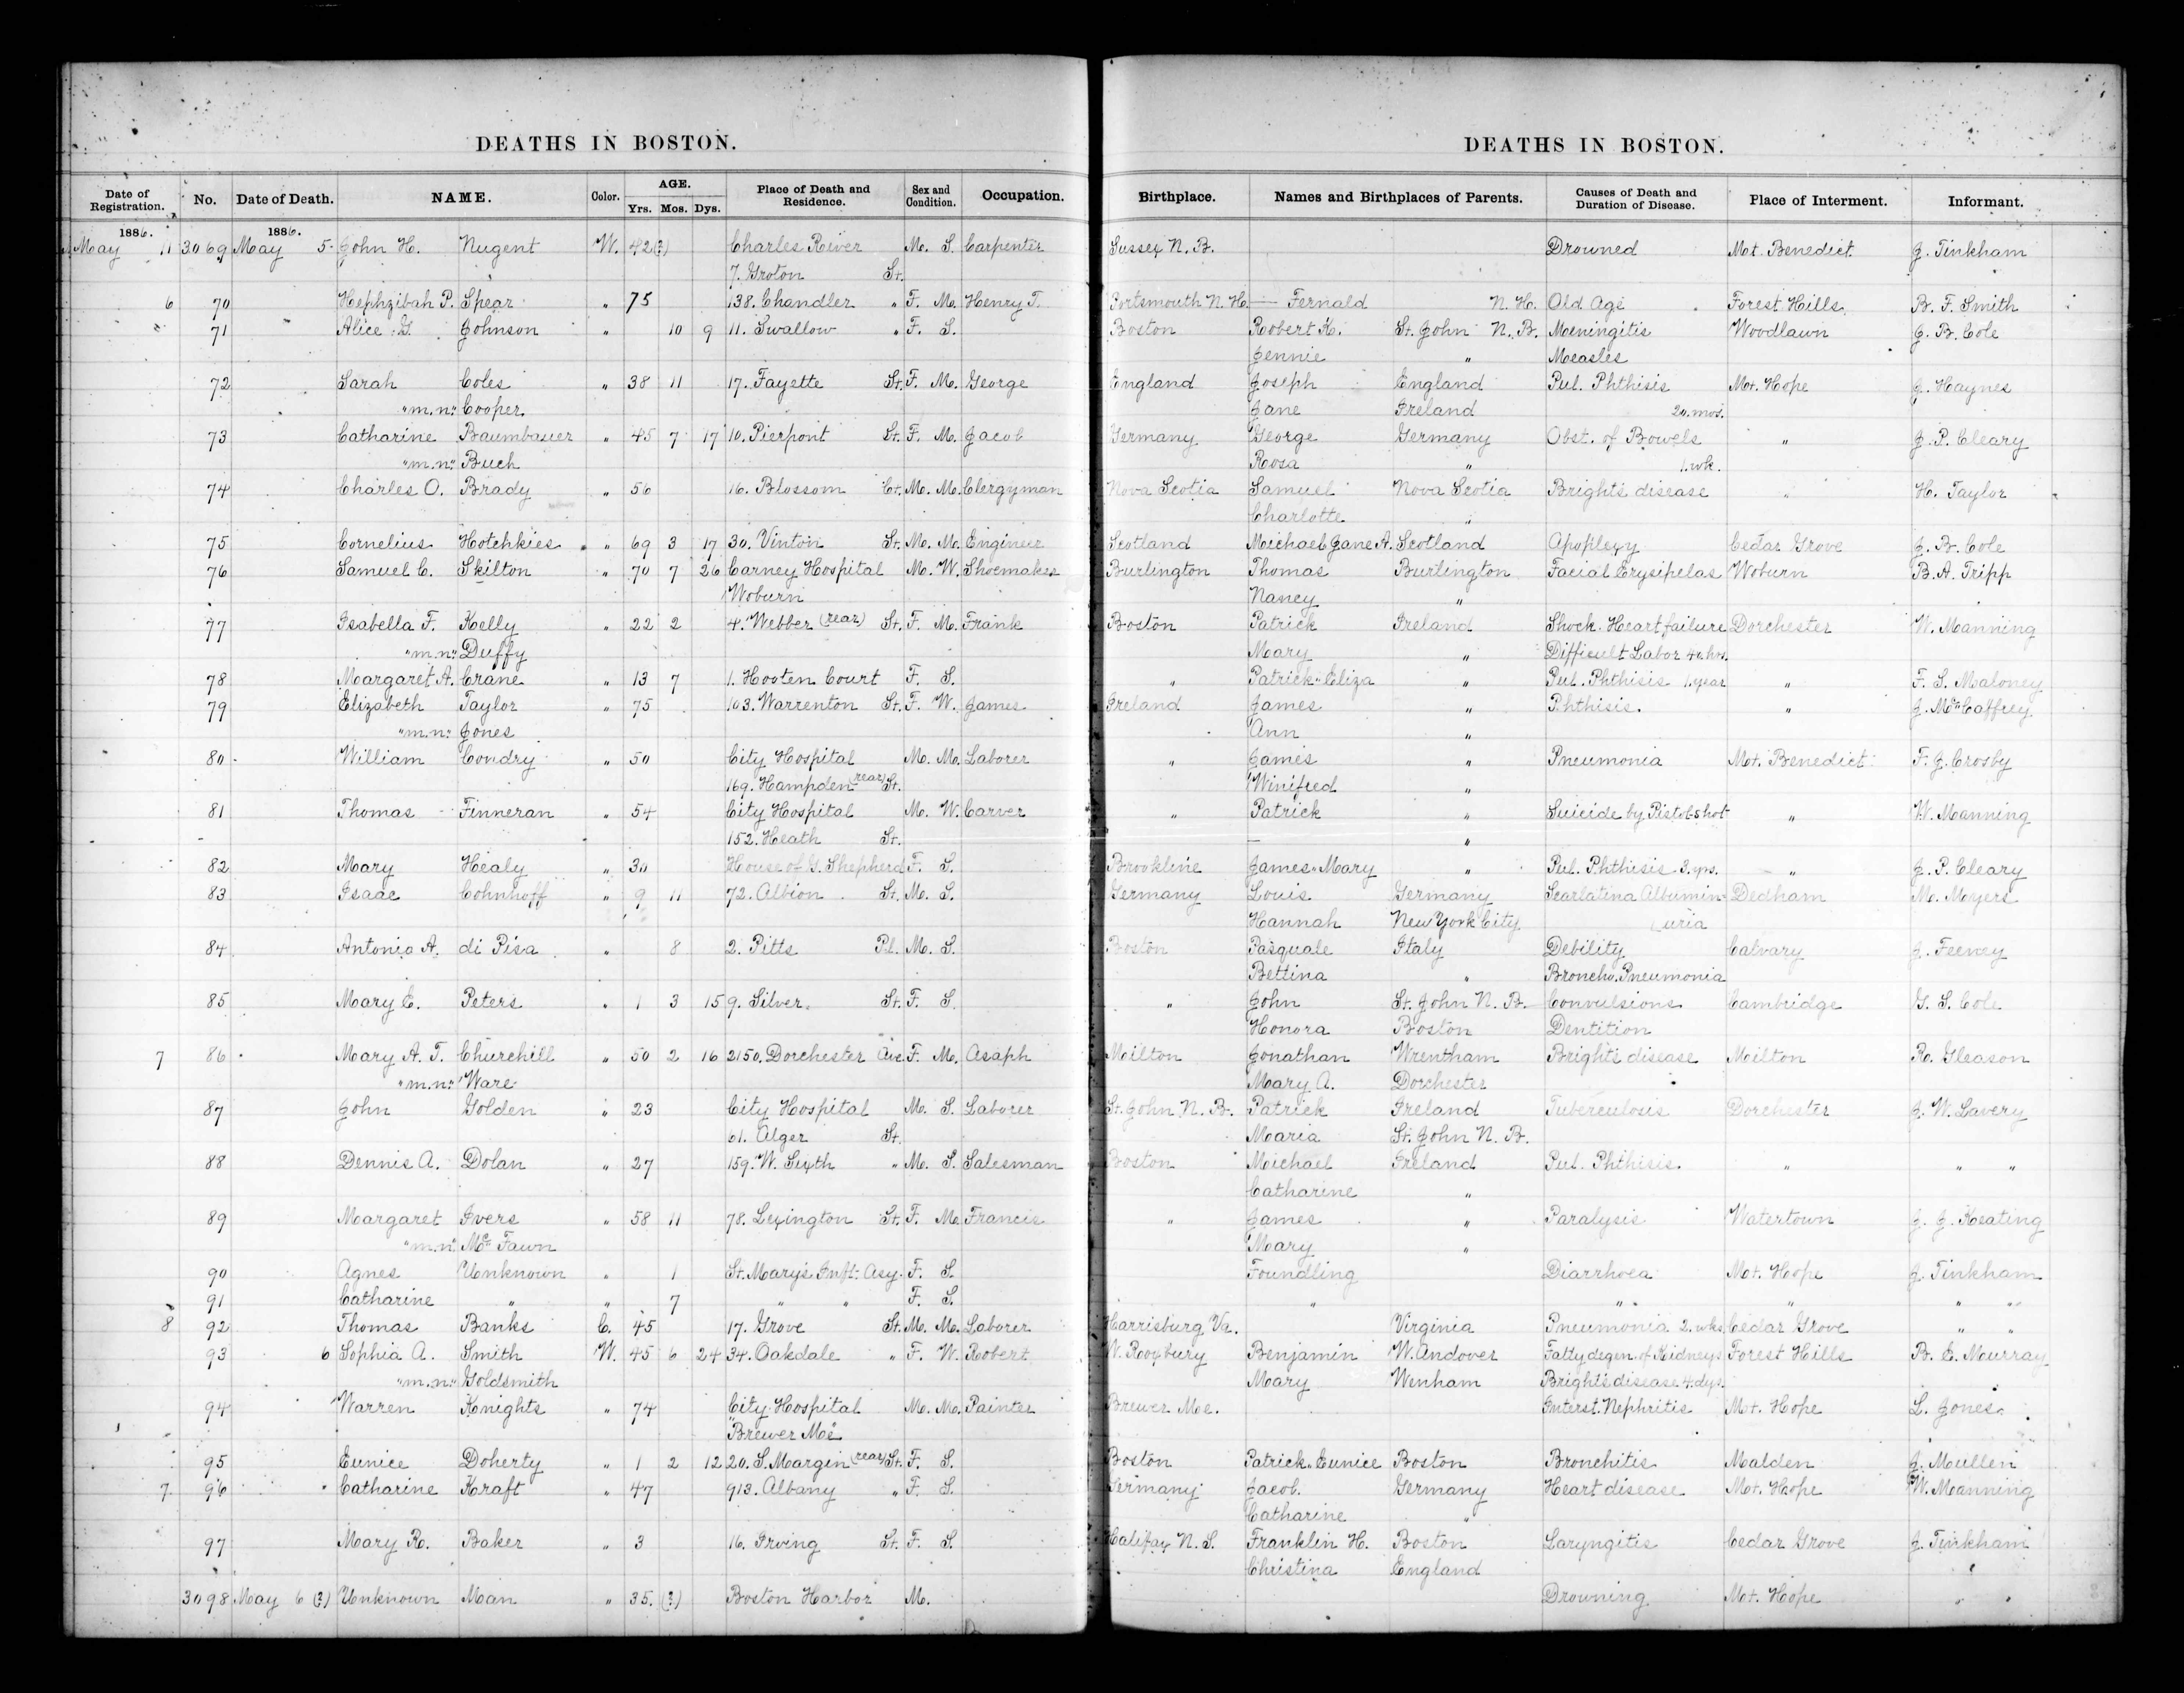 DEATHS IN BOSTON. DEATHS IN BOSTON.
Date of Registration. No. Date of Death. NAME. Color. AGE. Yrs. Mos. Dys. Place of Death and Residence. Sex and Condition. Occupation. Birthplace. Names and Birthplaces of Parents. Causes of Death and Duration of Disease. Place of Interment. Informant.
1886. 1886.
May 11 3069 May 5 John H. Nugent W. 42(?) Charles River M. S. Carpenter Sussex N. B. Drowned Mt. Benedict J. Tinkham
7. Groton St.
6 70 Hephzibah P. Spear " 75 138. Chandler " F. M. Henry T. Portsmouth N. H. — Fernald N. H. Old Age Forest Hills B. F. Smith
71 Alice G Johnson " 10 9 11. Swallow " F. S. Boston Robert K. St. John N. B. Meningitis Woodlawn J. B. Cole
Jennie " Measles
72 Sarah Coles " 38 11 17. Fayette St. F. M. George England Joseph England Pul. Phthisis Mt. Hope J. Haynes
"m.n." Cooper Jane Ireland 20. mos.
73 Catharine Baumbauer " 45 7 17 10. Pierpont St. F. M. Jacob Germany George Germany Obst. of Bowels " J. P. Cleary
"m.n." Buch Rosa " 1. wk.
74 Charles O. Brady " 56 16. Blossom Ct. M. M. Clergyman Nova Scotia Samuel Nova Scotia Bright's disease " H. Taylor
Charlotte "
75 Cornelius Hotchkies " 69 3 17 30. Vinton St. M. M. Engineer Scotland Michael Jane A. Scotland Apoplexy Cedar Grove J. B. Cole
76 Samuel C. Skilton " 70 7 26 Carney Hospital M. W. Shoemaker Burlington Thomas Burlington Facial Erysipelas Woburn B. A. Tripp
Woburn Nancy "
77 Isabella F. Kelly " 22 2 4. Webber (rear) St. F. M. Frank Boston Patrick Ireland Shock. Heart failure Dorchester W. Manning
"m.n." Duffy Mary " Difficult Labor 40 hrs.
78 Margaret A. Crane " 13 7 1. Hooten Court F. S. " Patrick " Eliza " Pul. Phthisis 1. year " F. S. Maloney
79 Elizabeth Taylor " 75 103. Warrenton St. F. W. James Ireland James " Phthisis. " J. McCaffrey
"m.n." Jones Ann "
80 William Condry " 50 City Hospital M. M. Laborer " James " Pneumonia Mt. Benedict F. J. Crosby
169. Hampden (rear) St. Winifred "
81 Thomas Finneran " 54 City Hospital M. W. Carver " Patrick " Suicide by Pistol-shot " W. Manning
152. Heath St. — "
82 Mary Healy " 30 House of G. Shepherd F. S. Brookline James " Mary " Pul. Phthisis 3. yrs. " J. P. Cleary
83 Isaac Cohnhoff " 9 11 72. Albion St. M. S. Germany Louis Germany Scarlatina Albumin- Dedham M. Myers
Hannah New York City uria
84 Antonio A. di Pisa " 8 2. Pitts Pl. M. S. Boston Pasquale Italy Debility Calvary J. Feeney
Bettina " Broncho. Pneumonia
85 Mary E. Peters " 1 3 15 9. Silver St. F. S. " John St. John N. B. Convulsions Cambridge G. S. Cole
Honora Boston Dentition
7 86 Mary A. T. Churchill " 50 2 16 2150. Dorchester Ave. F. M. Asaph Milton Jonathan Wrentham Bright's disease Milton R. Gleason
"m.n." Ware Mary A. Dorchester
87 John Golden " 23 City Hospital M. S. Laborer St. John N. B. Patrick Ireland Tuberculosis Dorchester J. W. Lavery
61. Alger St. Maria St. John N. B.
88 Dennis A. Dolan " 27 159. W. Sixth " M. S. Salesman Boston Michael Ireland Pul. Phthisis. " " "
Catharine "
89 Margaret Ivers " 58 11 78. Lexington St. F. M. Francis " James " Paralysis Watertown J. J. Keating
"m.n." McFawn Mary "
90 Agnes Unknown " 1 St. Mary's Inft. Asy. F. S. Foundling Diarrhoea Mt. Hope J. Tinkham
91 Catharine " " 7 " " F. S. " " " " "
8 92 Thomas Banks C. 45 17. Grove St. M. M. Laborer Harrisburg Va. Virginia Pneumonia 2. wks. Cedar Grove " "
93 6 Sophia A. Smith W. 45 6 24 34. Oakdale " F. W. Robert W. Roxbury Benjamin W. Andover Fatty degen. of Kidneys Forest Hills B. E. Murray
"m.n." Goldsmith Mary Wenham Bright's disease 4. dys.
94 Warren Knights " 74 City Hospital M. M. Painter Brewer Me. Interst. Nephritis Mt. Hope L. Jones
"Brewer Me."
95 Eunice Doherty " 1 2 12 20. S. Margin (rear) St. F. S. Boston Patrick " Eunice Boston Bronchitis Malden J. Mullen
7 96 Catharine Kraft " 47 913. Albany " F. S. Germany Jacob. Germany Heart disease Mt. Hope W. Manning
Catharine "
97 Mary R. Baker " 3 16. Irving St. F. S. Halifax N. S. Franklin H. Boston Laryngitis Cedar Grove J. Tinkham
Christina England
3098 May 6 (?) Unknown Man " 35. (?) Boston Harbor M. Drowning Mt. Hope " "